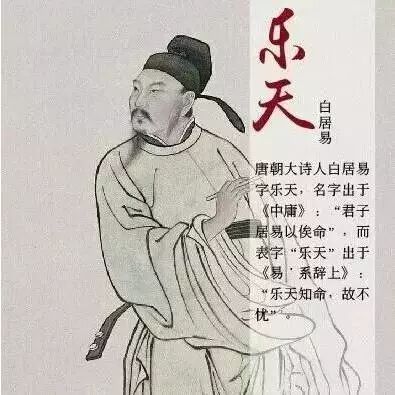 乐天
白居易
唐朝大诗人白居易
字乐天，名字出于
《中庸》：“君子
居易以俟命”，而
表字“乐天”出于
《易·系辞上》：
“乐天知命，故不
忧”。